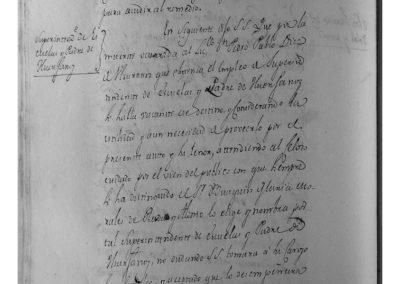 para acudir al remedio.
Superintend.te de
Escuelas y Padre de
Huerfanos
En siguiente SS. Que por la
muerte ocurrida al S.r D.n Pedro Pablo Diez
que obtenia el empleo de Superin
tendente de Escuelas y Padre de Huerfanos
se halla vacante ese destino, y considerando la
utilidad y aun necesidad de proveerlo por el
presente auto y su tenor, atendiendo al celo y
cuidado por el vien del publico con que siempre
se ha distinguido el S.r Dn Joaquin
le elige y nombra por
tal Superintendente de Escuelas y Padre de
Huerfanos, no dudando S.S. tomara a su cargo
que lo desempeñara